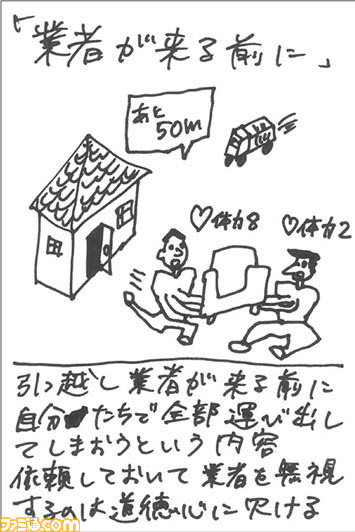 「業者が来る前に」
あと
50m
♡体力8
♡体力2
引っ越し業者が来る前に
自分たちで全部運び出し
てしまおうという内容
依頼しておいて業者を無視
するのは道徳心に欠ける
ファミ通.com